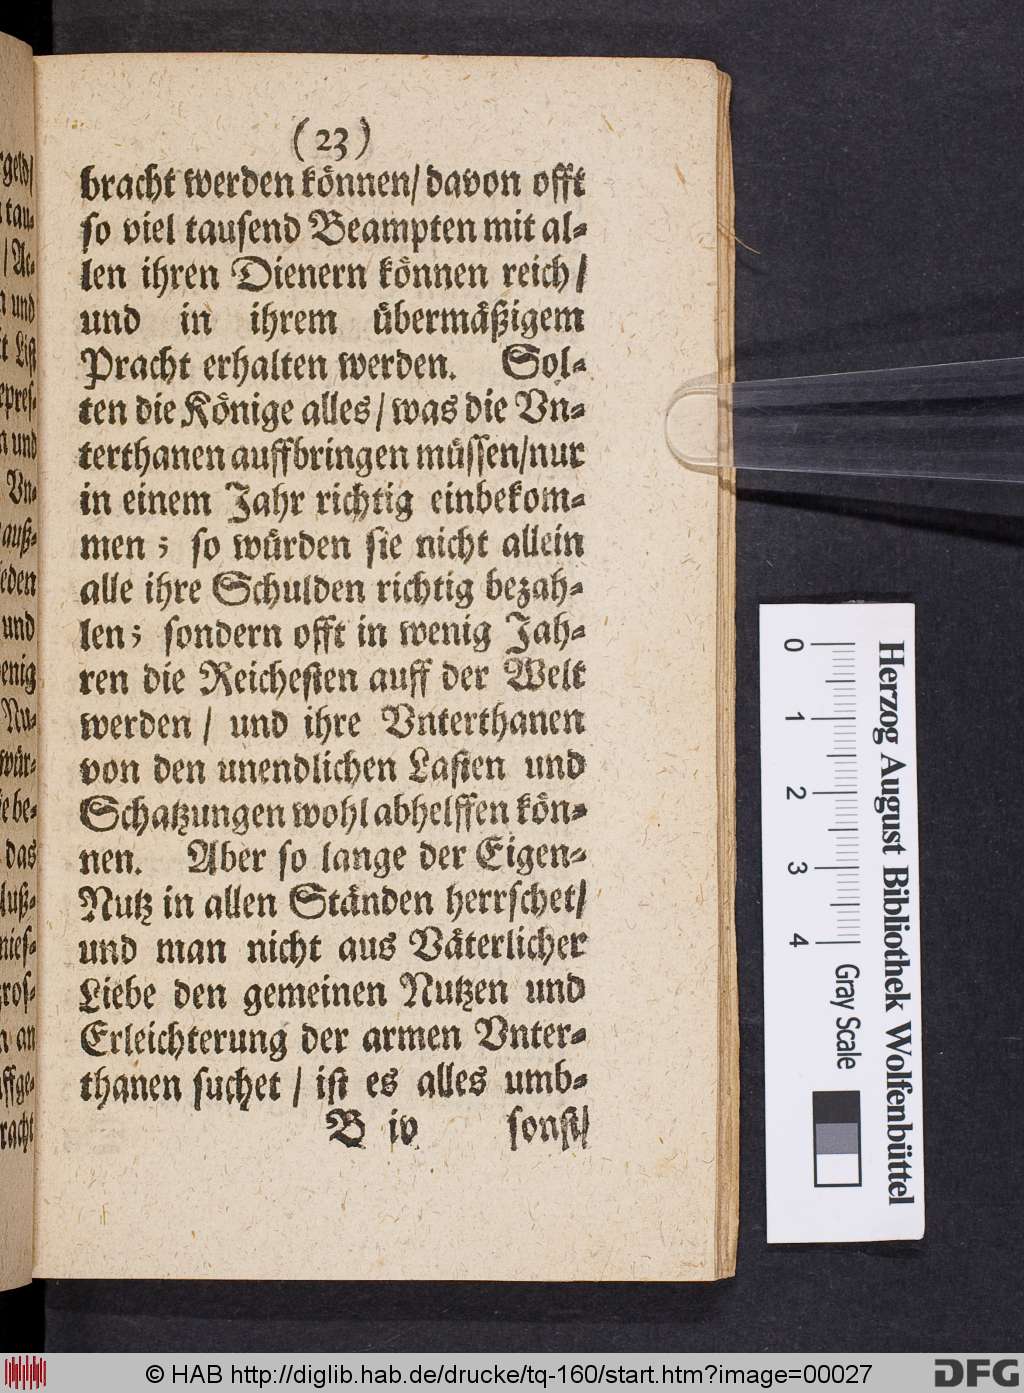 (23)
bracht werden können/ davon offt
so viel tausend Beampten mit al-
len ihren Dienern können reich/
und in ihrem übermäßigem
Pracht erhalten werden. Sol-
ten die Könige alles/ was die Vn-
terthanen auffbringen müssen/ nur
in einem Jahr richtig einbekom-
men; so würden sie nicht allein
alle ihre Schulden richtig bezah-
len; sondern offt in wenig Jah-
ren die Reichesten auff der Welt
werden/ und ihre Vnterthanen
von den unendlichen Lasten und
Schatzungen wohl abhelffen kön-
nen. Aber so lange der Eigen-
Nutz in allen Ständen herrschet/
und man nicht aus Väterlicher
Liebe den gemeinen Nutzen und
Erleichterung der armen Vnter-
thanen suchet/ ist es alles umb-
B iv sonst/
Herzog August Bibliothek Wolfenbüttel
0 1 2 3 4 Gray Scale
© HAB http://diglib.hab.de/drucke/tq-160/start.htm?image=00027
DFG